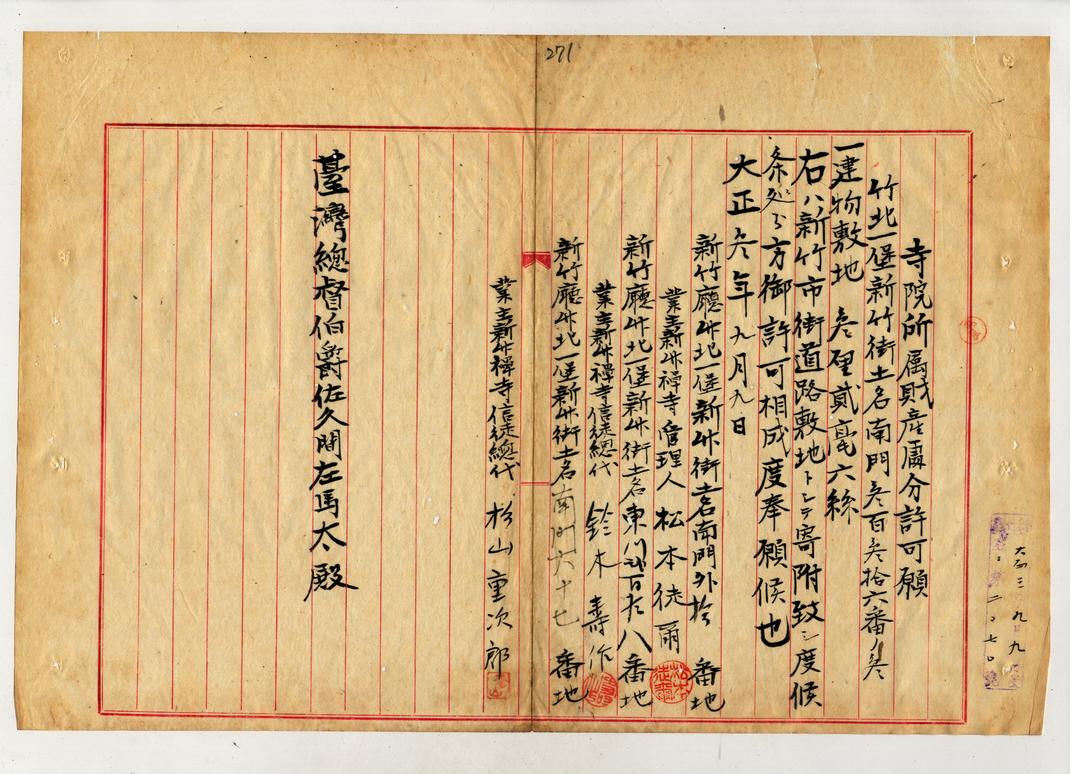 271
寺院所属財産處分許可願
竹北一堡新竹街土名南門参百参拾六番ノ参
一建物敷地 参厘貳毫六絲
右ハ新竹市街道路敷地トシテ寄附致シ度候
条 方御許可相成度奉願候也
大正参年九月九日
新竹廳竹北一堡新竹街土名南門外拾 番地
業主新竹禅寺管理人 松本徒爾
新竹廳竹北一堡新竹街土名東 百 八番地
業主新竹禅寺信徒總代 鈴木壽作
新竹廳竹北一堡新竹街土名南門六十七番地
業主新竹禅寺信徒總代 杉山重次郎
臺灣總督伯爵佐久間左馬太殿